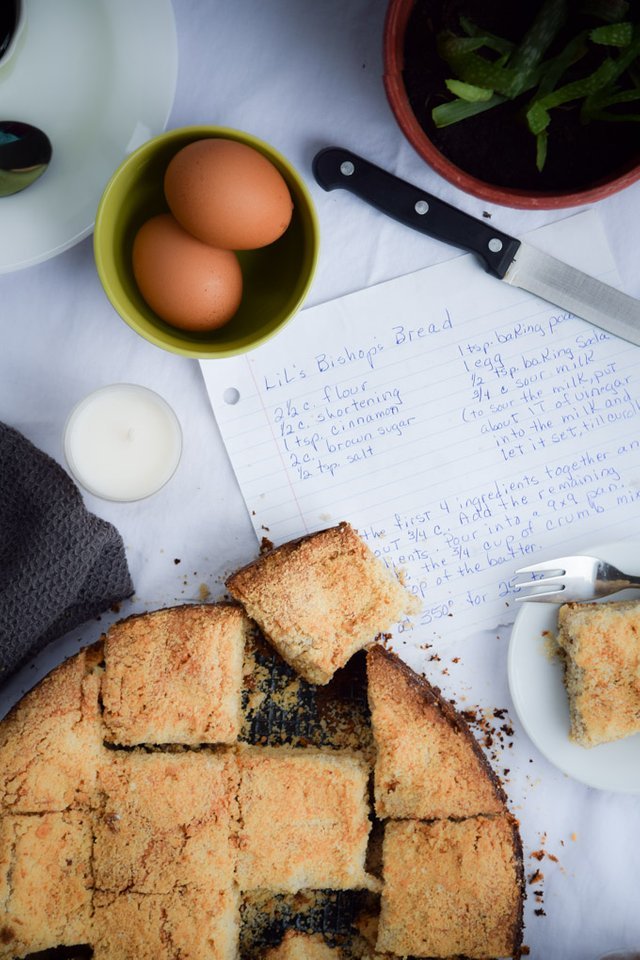 LiL's Bishop's Bread
2½ c. flour
½ c. shortening
1 tsp. cinnamon
2 c. brown sugar
½ tsp. salt
1 tsp. baking
1 egg
½ tsp. baking soda
¾ c. sour milk
(to sour the milk, put
about 1T of vinegar
into the milk and
let it set, till
the first 4 ingredients together
¾ c. Add the remaining
Pour into a 9x9 pan.
the ¾ cup of crumb
of the batter.
350° for 25